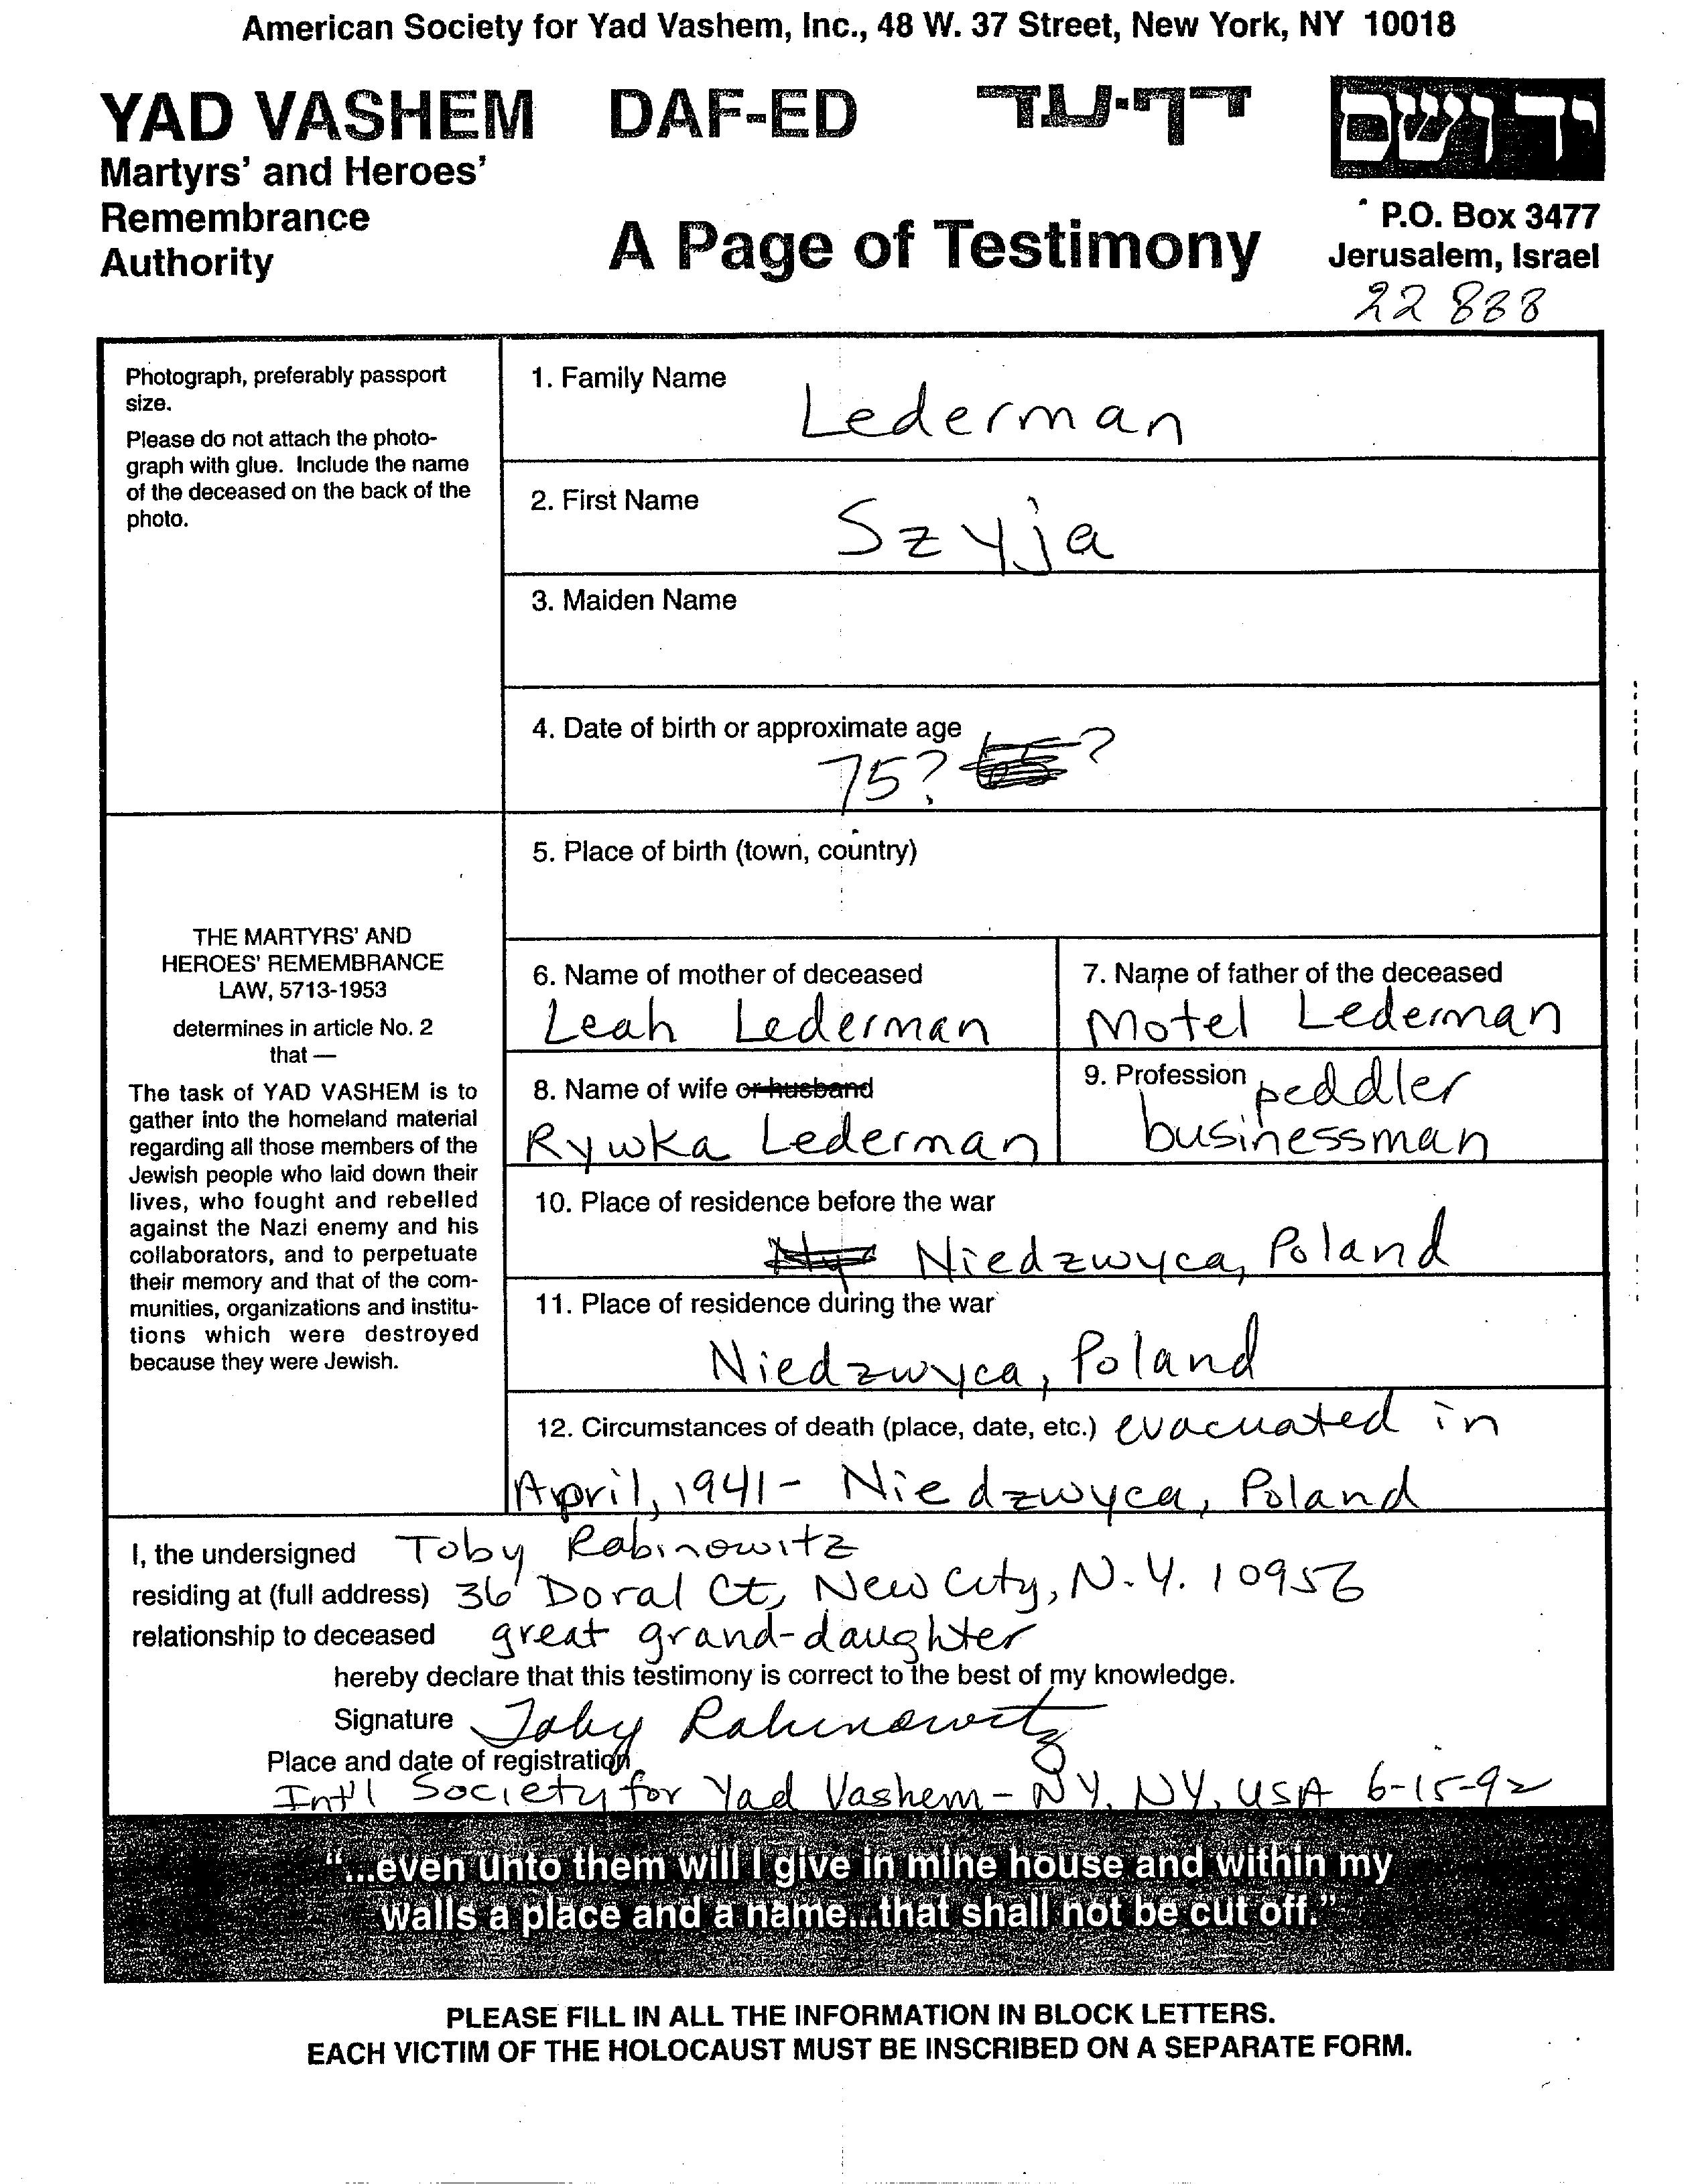 American Society for Yad Vashem, Inc., 48 W. 37 Street, New York, NY 10018
YAD VASHEM DAF-ED דף-עד ידושם
Martyrs' and Heroes'
Remembrance
Authority
A Page of Testimony
P.O. Box 3477
Jerusalem, Israel
22 888
Photograph, preferably passport
size.
Please do not attach the photo-
graph with glue. Include the name
of the deceased on the back of the
photo.
1. Family Name
Lederman
2. First Name
Szyja
3. Maiden Name
4. Date of birth or approximate age
75? ?
5. Place of birth (town, country)
THE MARTYRS' AND
HEROES' REMEMBRANCE
LAW, 5713-1953
determines in article No. 2
that —
The task of YAD VASHEM is to
gather into the homeland material
regarding all those members of the
Jewish people who laid down their
lives, who fought and rebelled
against the Nazi enemy and his
collaborators, and to perpetuate
their memory and that of the com-
munities, organizations and institu-
tions which were destroyed
because they were Jewish.
6. Name of mother of deceased
Leah Lederman
7. Name of father of the deceased
Motel Lederman
8. Name of wife or husband
Rywka Lederman
9. Profession peddler
businessman
10. Place of residence before the war
Niedzwyca, Poland
11. Place of residence during the war
Niedzwyca, Poland
12. Circumstances of death (place, date, etc.) evacuated in
April, 1941 - Niedzwyca, Poland
I, the undersigned Toby Rabinowitz
residing at (full address) 36 Doral Ct, New City, N.Y. 10956
relationship to deceased great grand-daughter
hereby declare that this testimony is correct to the best of my knowledge.
Signature Toby Rabinowitz
Place and date of registration
Int'l Society for Yad Vashem - NY, NY, USA 6-15-92
"...even unto them will I give in mine house and within my
walls a place and a name...that shall not be cut off."
PLEASE FILL IN ALL THE INFORMATION IN BLOCK LETTERS.
EACH VICTIM OF THE HOLOCAUST MUST BE INSCRIBED ON A SEPARATE FORM.